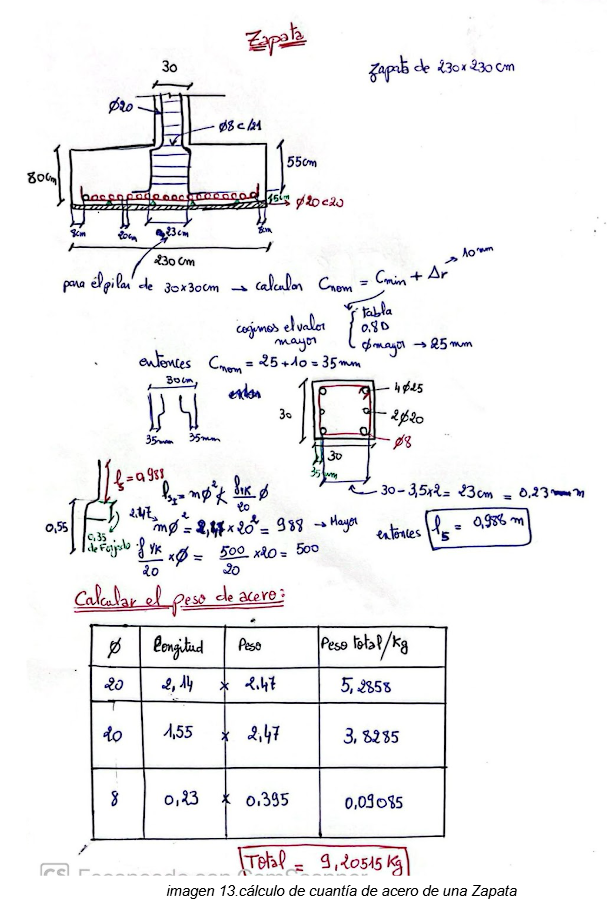 Zapata
Zapata de 230x230cm
30
Ø20
Ø8c/21
80cm
55cm
15cm
Ø20c20
8cm
20cm
23cm
8cm
230cm
para él pilar de 30x30cm → calcular Cnom = Cmin + Δr → 10mm
cogimos el valor mayor
tabla
0.8D
Ømayor → 25mm
entonces Cnom = 25+10 = 35mm
30cm
35mm 35mm
30
4Ø25
2Ø20
Ø8
30
35mm
30-3,5x2 = 23cm = 0,23m
ls=0,988
0,55
0,35
de Forjado
mØ² < fyk/20 Ø
2.47
mØ² = 2,47 x 20² = 988 → Mayor
fyk/20 x Ø = 500/20 x 20 = 500
entonces ls = 0,988 m
Calcular el peso de acero:
Ø Longitud Peso Peso total/Kg
20 2,14 x 2.47 5,2858
20 1,55 x 2,47 3,8285
8 0,23 x 0.395 0,09085
Total = 9,20515Kg
CS
imagen 13.cálculo de cuantía de acero de una Zapata